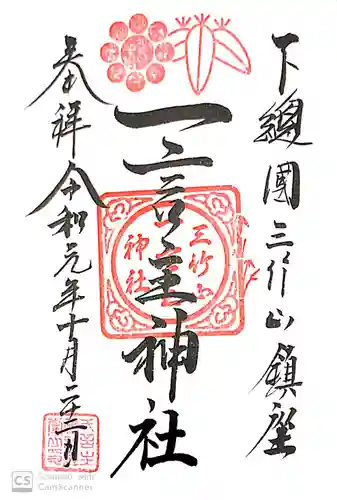 下總國三竹山鎮座
一言主神社
三竹山
神社
奉拝令和元年十月二十二日
CS CamScanner